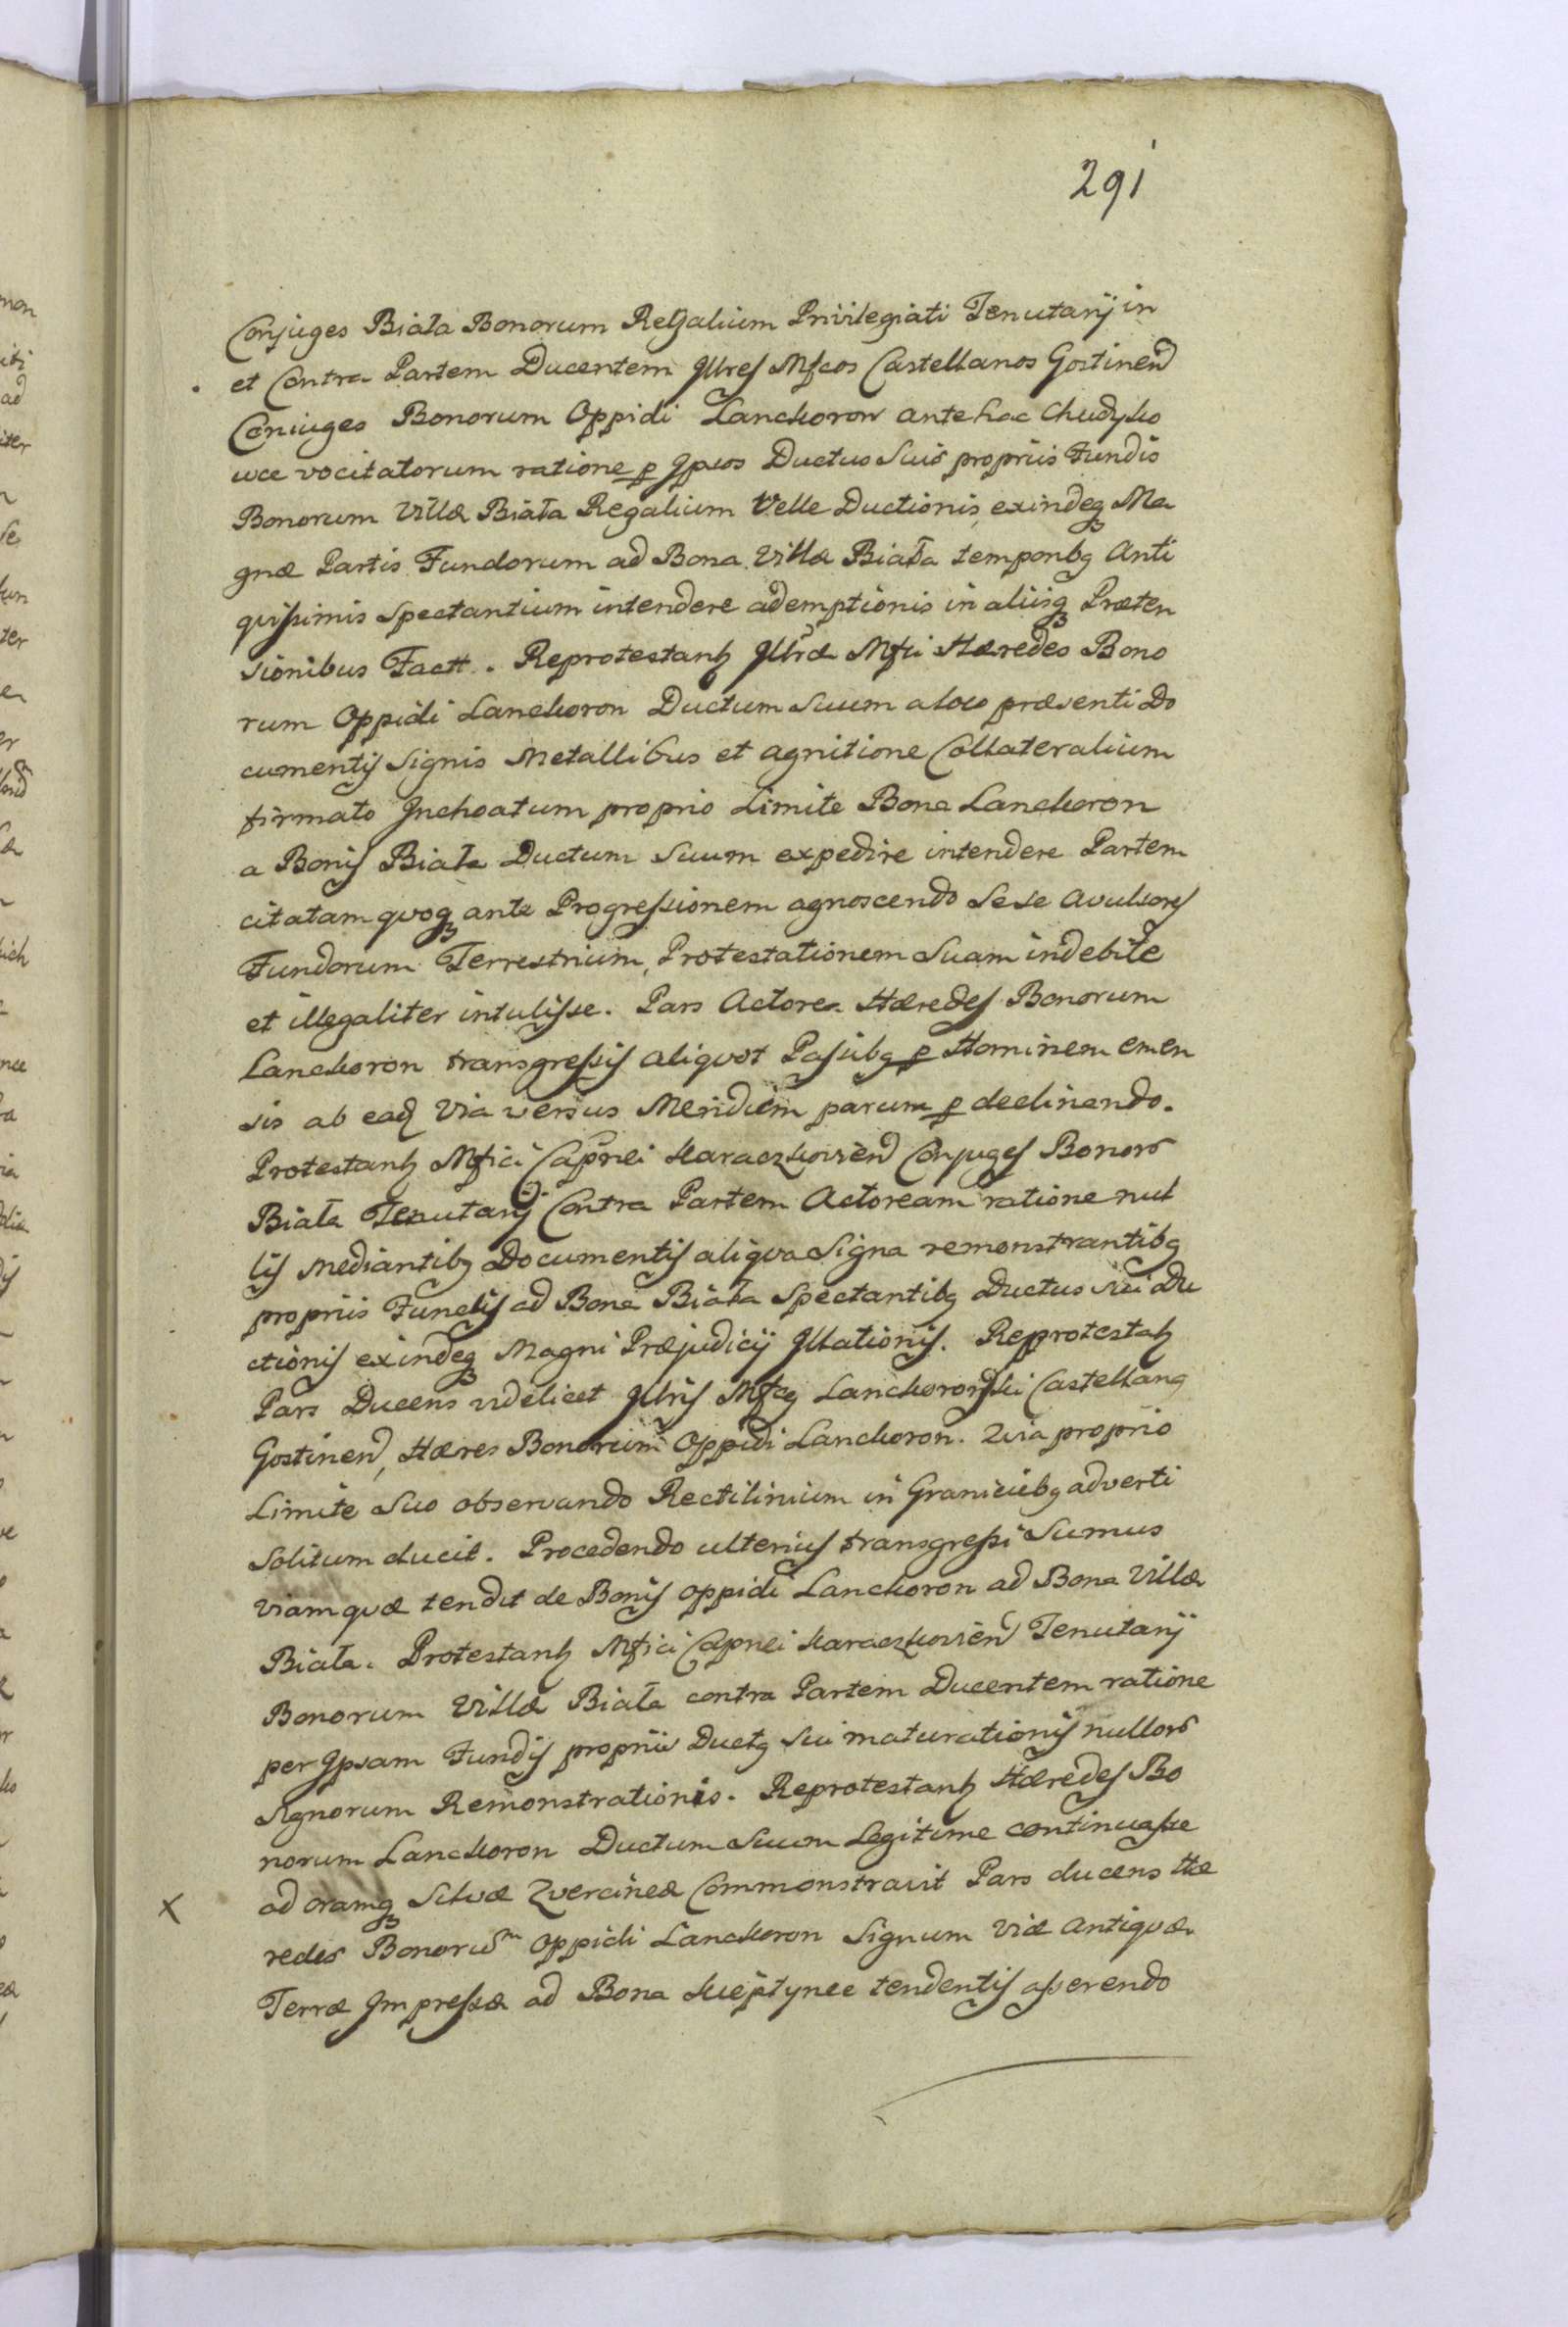 291
Conjuges Biała Bonorum Regalium Privilegiati Tenutarij in
et Contra Partem Ducentem Jllres Mfcos Castellanos Gostinen̄
Coniuges Bonorum Oppidi Lanckoron antehac Chudyko
wce vocitatorum ratione p Jpsos Ductus Suis propriis Fundis
Bonorum Villæ Biała Regalium Velle Ductionis exindeqȝ Ma
gnæ Partis Fundorum ad Bona Villæ Biała temporibȝ Anti
quissimis Spectantium intendere ademptionis in aliisqȝ Præten
sionibus Factt. Reprotestantȝ Jllræ Mfci Hæredes Bono
rum Oppidi Lanckoron Ductum Suum a loco præsenti Do
cumentis Signis Metallibus et agnitione Collateralium
firmato Jnchoatum proprio Limite Bona Lanckoron
a Bonis Biała Ductum Suum expedire intendere Partem
citatam quoqȝ ante Progressionem agnoscendo Sese Avulsores
Fundorum Terrestrium, Protestationem Suam indebite
et illegaliter intulisse. Pars Actorea Hæredes Bonorum
Lanckoron transgressis aliquot Passibȝ p Hominem emen
sis ab eadȝ Via versus Meridiem parum p declinando.
Protestantȝ Mfici Capnei Karaczkovien̄ Conjuges Bonorȝ
Biała Tenutarij Contra Partem Actoream ratione nul
lis Mediantibȝ Documentis aliqva Signa remonstrantibȝ
propriis Fundis ad Bona Biała Spectantibȝ Ductus sui Du
ctionis exindeqȝ Magni Præjudicij Jllationis. Reprotestatȝ
Pars Ducens videlicet Jllris Mfcȝ Lanckoroński Castellanȝ
Gostinen̄, Hæres Bonorum Oppidi Lanckoron. Qvia proprio
Limite Suo observando Rectilinium in Graniciebȝ adverti
Solitum ducit. Procedendo ulterius transgressi Sumus
viam quæ tendit de Bonis oppidi Lanckoron ad Bona Villæ
Biała. Protestantȝ Mfici Capnei Karaczkovien̄ Tenutarij
Bonorum Villæ Biała contra Partem Ducentem ratione
per Jpsam Fundis propriis Ductȝ Sui maturationis nullorȝ
Signorum Remonstrationis. Reprotestantȝ Hæredes Bo
norum Lanckoron Ductum Suum Legitime continuasse
x ad oramqȝ Silvæ Qvercineæ Commonstravit Pars ducens Hæ
redes Bonorum Oppidi Lanckoron Signum Viæ Antiquæ
Terræ Jmpressæ ad Bona tendentis asserendo